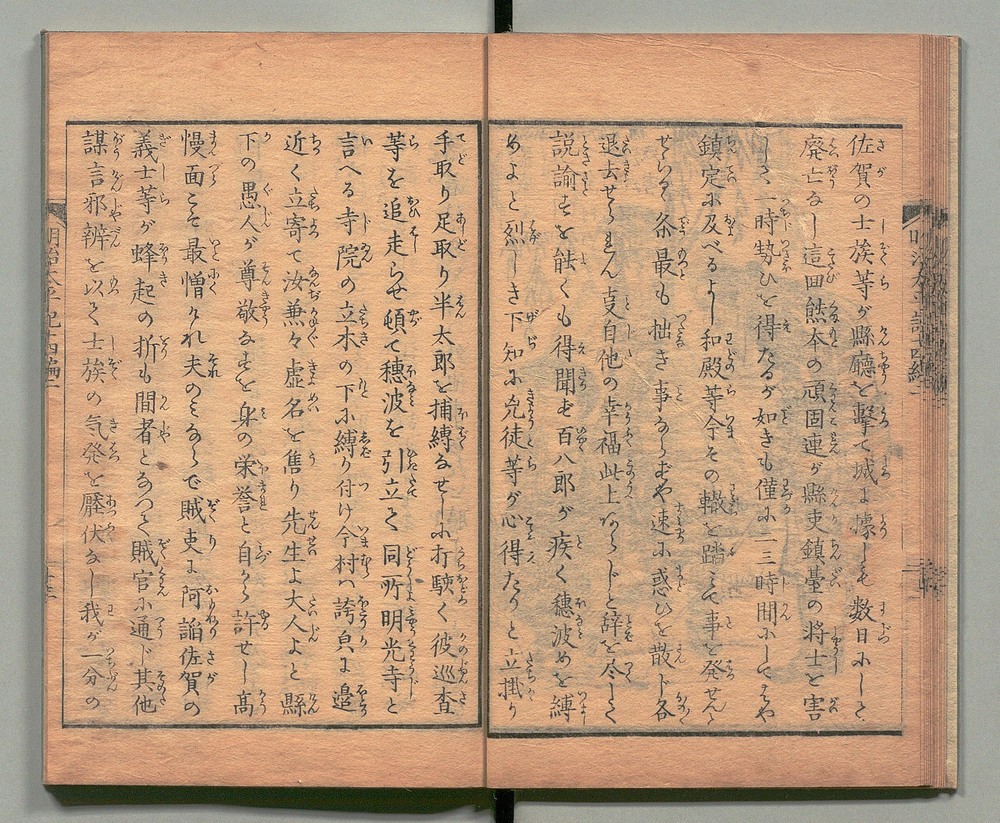 佐賀の士族等が縣廳を撃て城に據しも数日にして
廃亡なし這回熊本の頑固連が縣吏鎮臺の将士を害
一時勢ひを得たるが如きも僅に二三時間にしてはや
鎮定に及べるよし和殿等今その轍を踏て事を発せんと
せらるゝ条最も拙き事ならずや速に惑ひを散じ各
退去せられん支自他の幸福此上あらじと辞を尽して
説諭すを能くも得聞ず百八郎が疾く穂波めを縛
めよと烈しき下知に兇徒等が心得たりと立掛り
手取り足取り半太郎を捕縛なせしに打駭く彼巡査
等を追走らせ頓て穂波を引立て同所明光寺と
言へる寺院の立木の下に縛り付け今村ハ誇負に邉
近く立寄て汝兼々虚名を售り先生よ大人よと縣
下の愚人が尊敬なすを身の栄誉と自から許せし高
慢面こそ最憎けれ夫のミならで賊吏に阿諂佐賀の
義士等が蜂起の折も間者となつて賊官に通じ其他
謀言邪辨を以て士族の気発を壓伏なし我が一分の
明治太平記四編